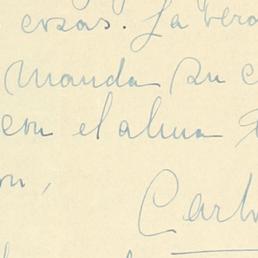 cosas. La verd
manda su c
con el alma
on,
Carl